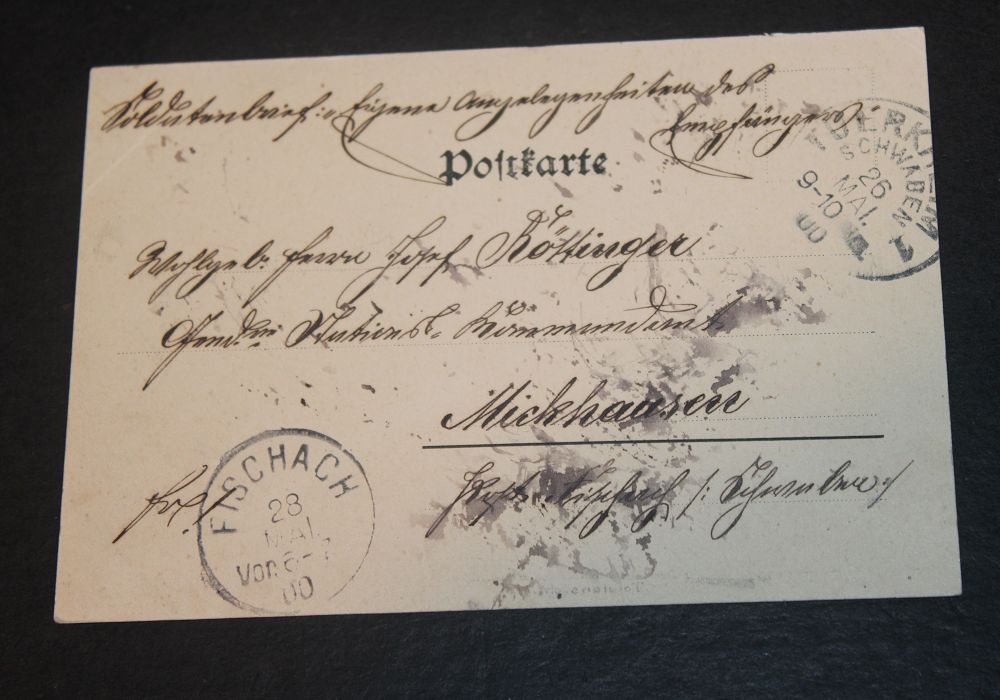 Soldatenbrief: Eigene Angelegenheiten des
Empfängers.
Postkarte
Wohlgeb. Herrn Josef Röttinger
Stations-Kommandant
Mickhausen
Post Fischach /: Schwaben :/
SCHWABEN
26
MAI.
9-10
00
1
FISCHACH
28
MAI.
Vor. 6-7
00